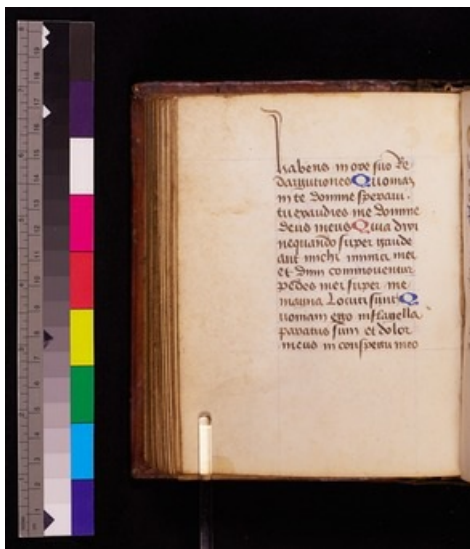 habens in ore suo re
dargutiones Quoniam
in te domine speravi.
tu exaudies me domine
deus meus Quia dixi
nequando super gaude
ant michi inimici mei
et dum commoventur
pedes mei super me
magna locuti sunt Q
uoniam ego in flagella
paratus sum et dolor
meus in conspectu meo